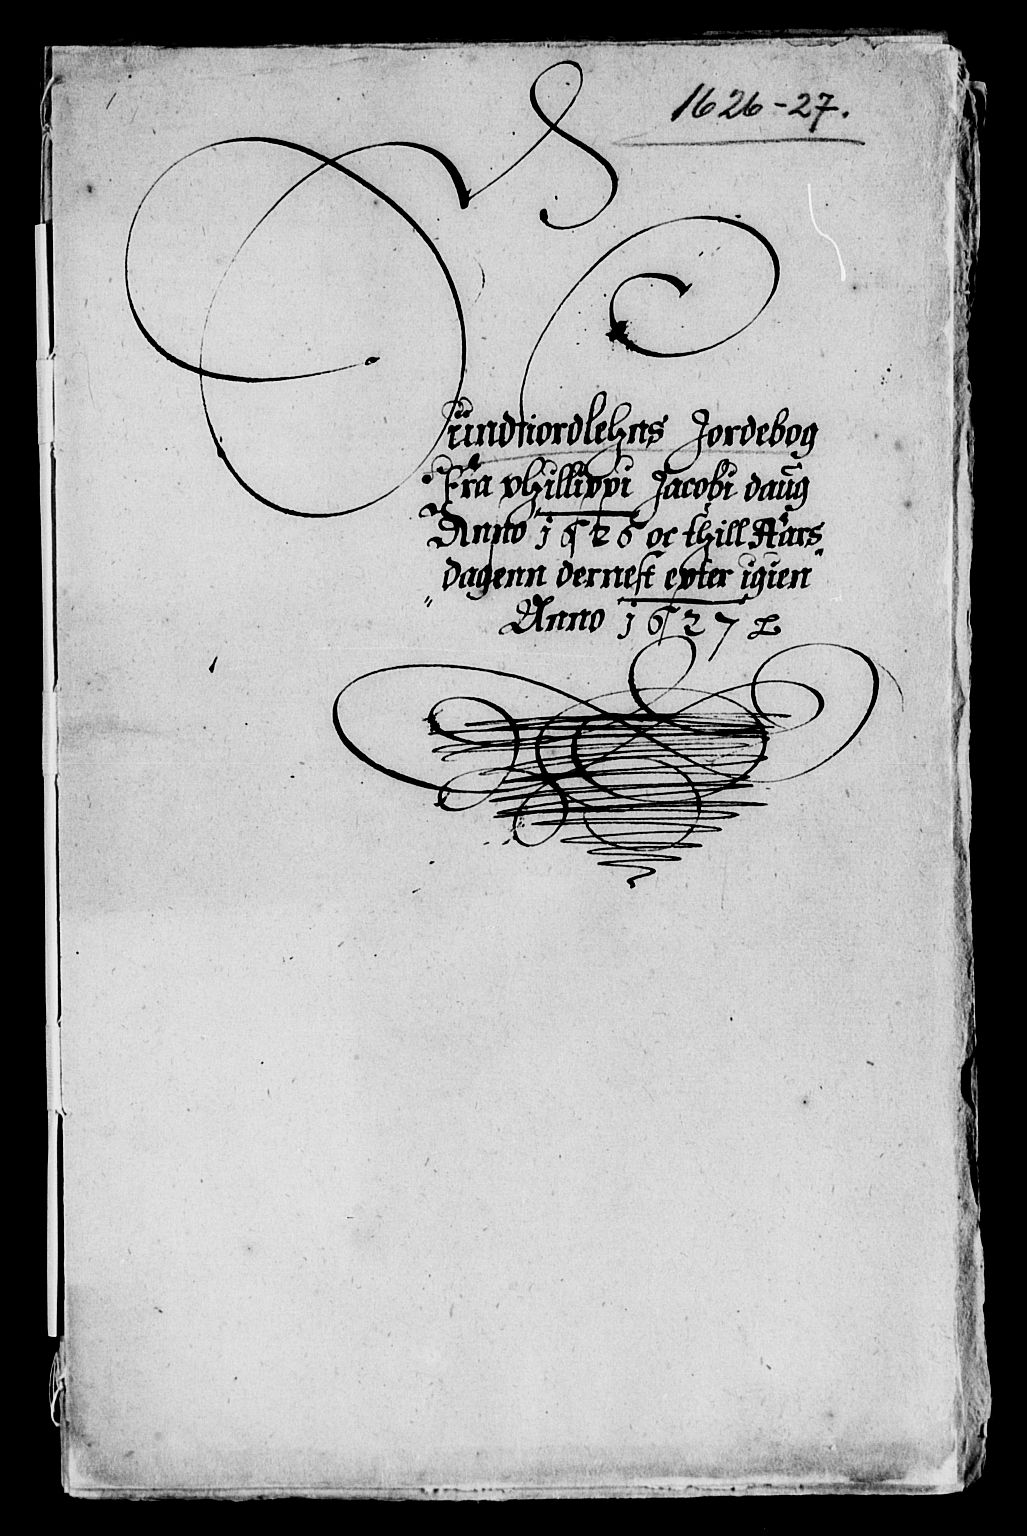 1626-27.
Sündfiordlehns Jordebog
Fra phillippi Jacobi daug
Anno 1626 oc thill Aars
dagenn dernest epter igien
Anno 1627